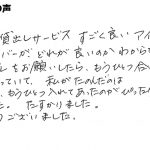 の声
貸出しサービス すごく良い アイ
バーがどれが良いのかわから
をお願いしたら、もうひとつ合い
っていて、私がたのんだのは
、もうひとつ入れてあったのがぴった
た。たすかりました。
うございました。